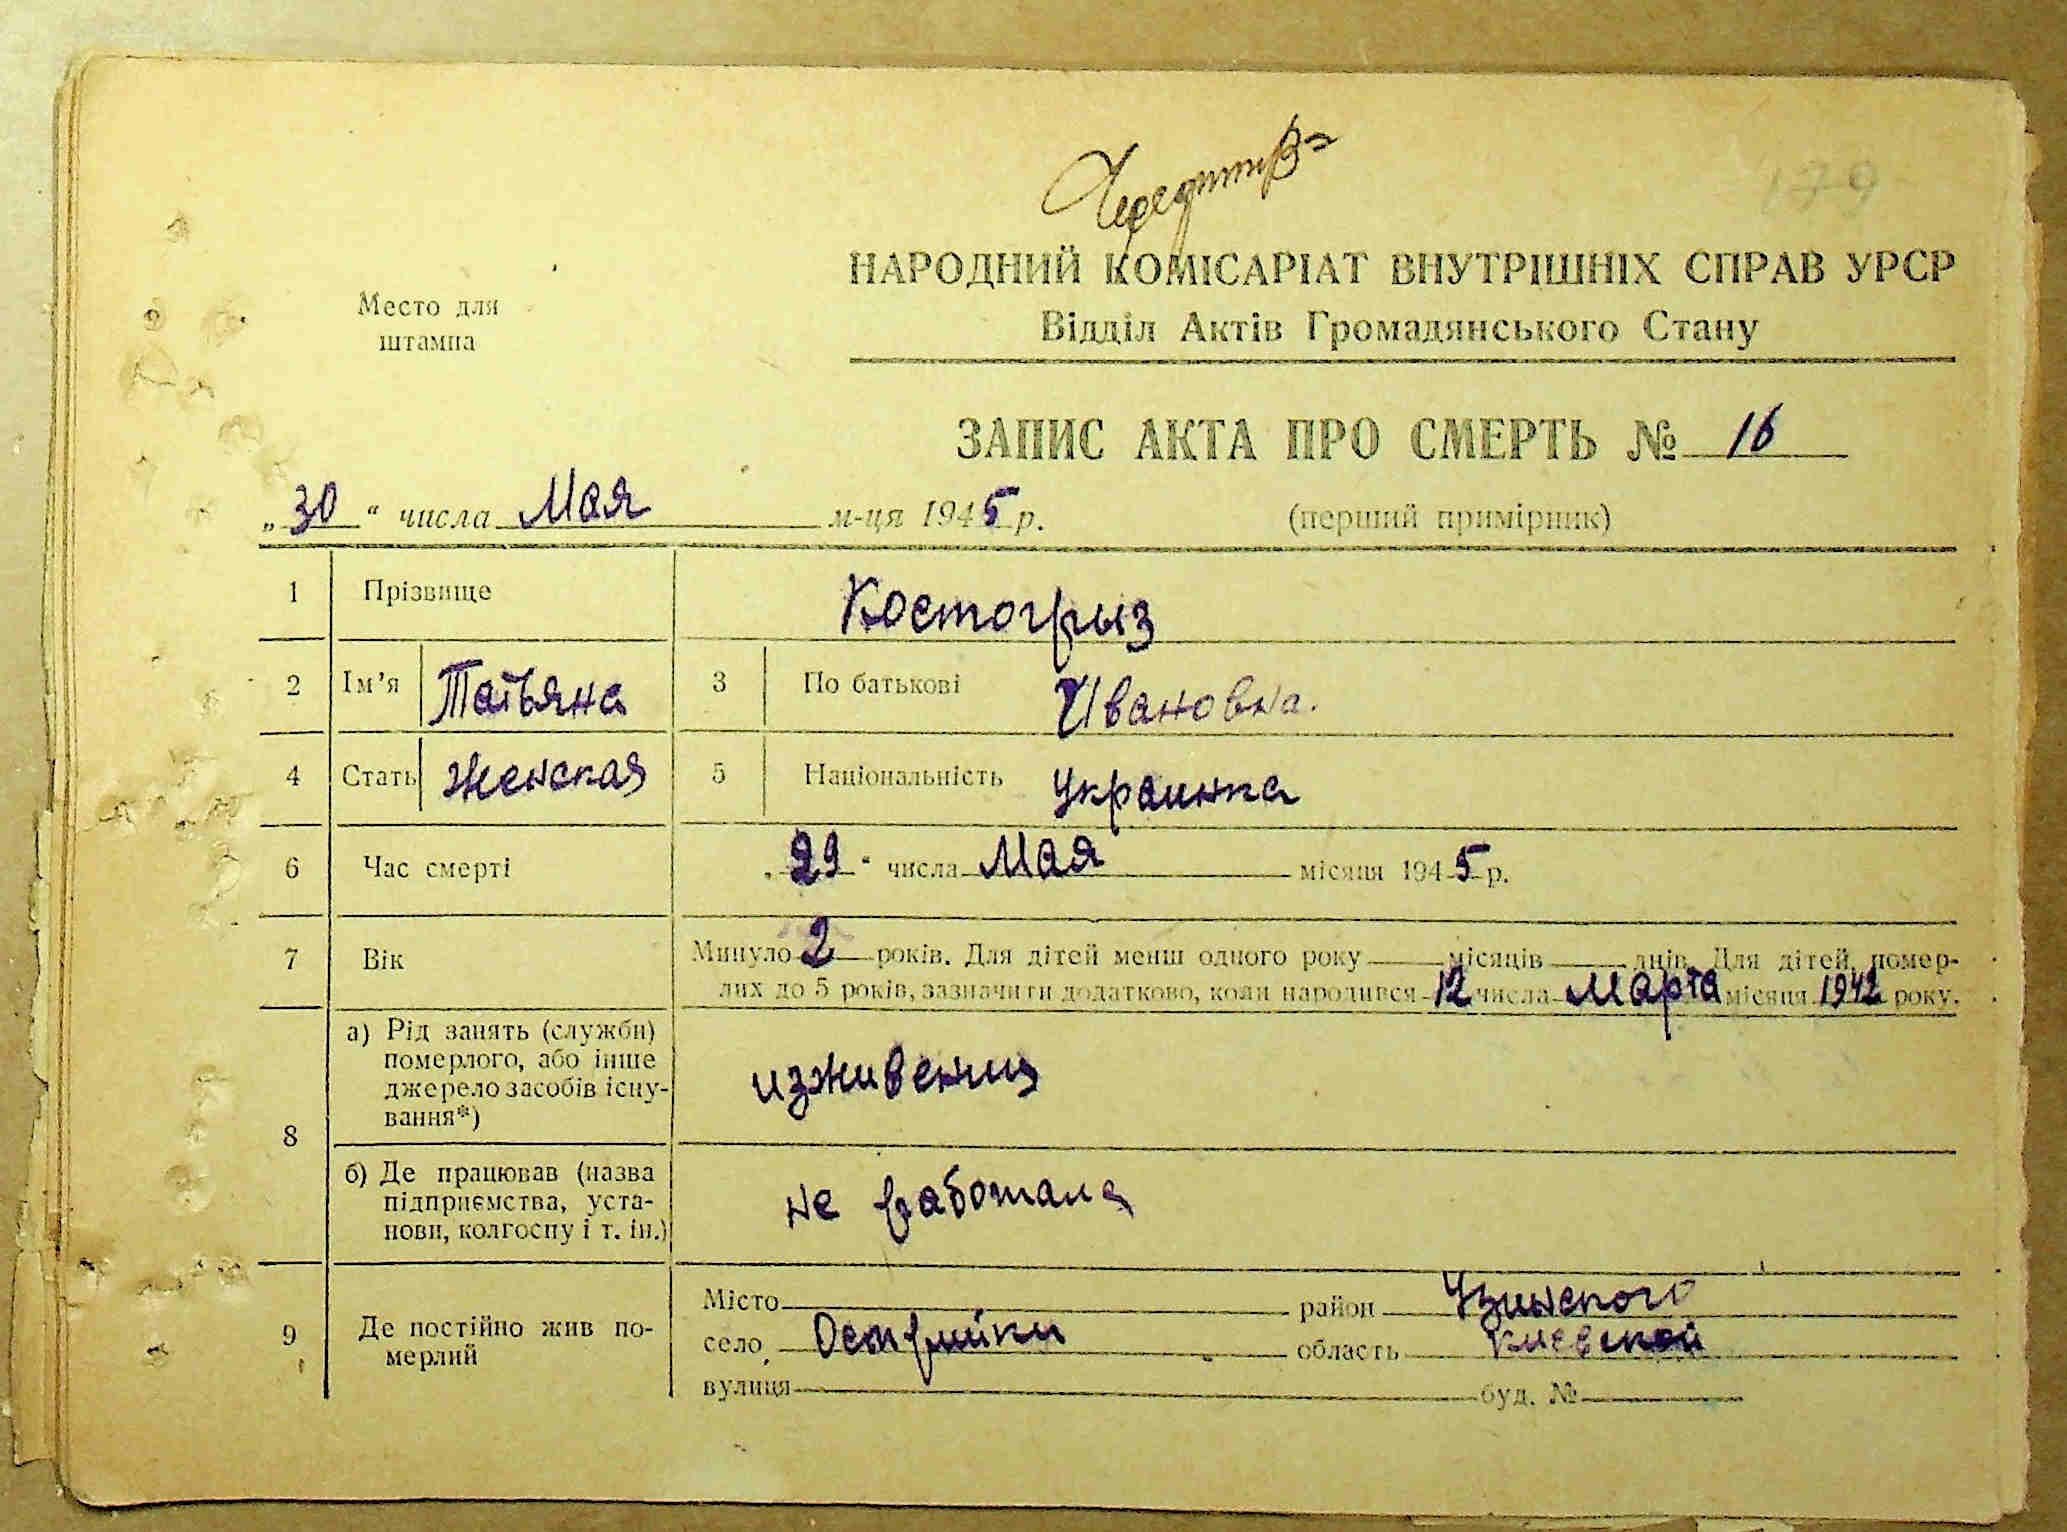 179
НАРОДНИЙ КОМІСАРІАТ ВНУТРІШНІХ СПРАВ УРСР
Відділ Актів Громадянського Стану
Место для
штампа
ЗАПИС АКТА ПРО СМЕРТЬ № 16
„30“ числа Мая м-ця 1945 р. (перший примірник)
1 Прізвище Костогрыз
2 Ім'я Татьяна 3 По батькові Ивановна.
4 Стать Женская 5 Національність Украинка
6 Час смерті „29“ числа Мая місяця 1945 р.
7 Вік Минуло 2 років. Для дітей менш одного року місяців днів. Для дітей, помер-
лих до 5 років, зазначити додатково, коли народився 12 числа Марта місяця 1942 року.
8 а) Рід занять (служби)
померлого, або інше
джерело засобів існу-
вання*)
изживениц
б) Де працював (назва
підприємства, уста-
нови, колгоспу і т. ін.)
не работала
9 Де постійно жив по-
мерлий
Місто район Узинского
село Острийки область Киевской
вулиця буд. №